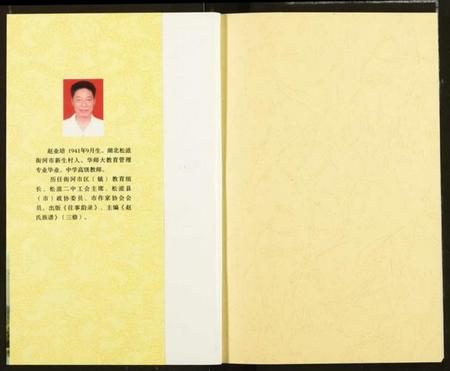 赵业培 1941年9月生。湖北松滋
街河市新生村人。华师大教育管理
专业毕业。中学高级教师。
历任街河市区（镇）教育组
长、松滋二中工会主席、松滋县
（市）政协委员、市作家协会会
员。出版《往事韵录》、主编《赵
氏族谱》（三修）。